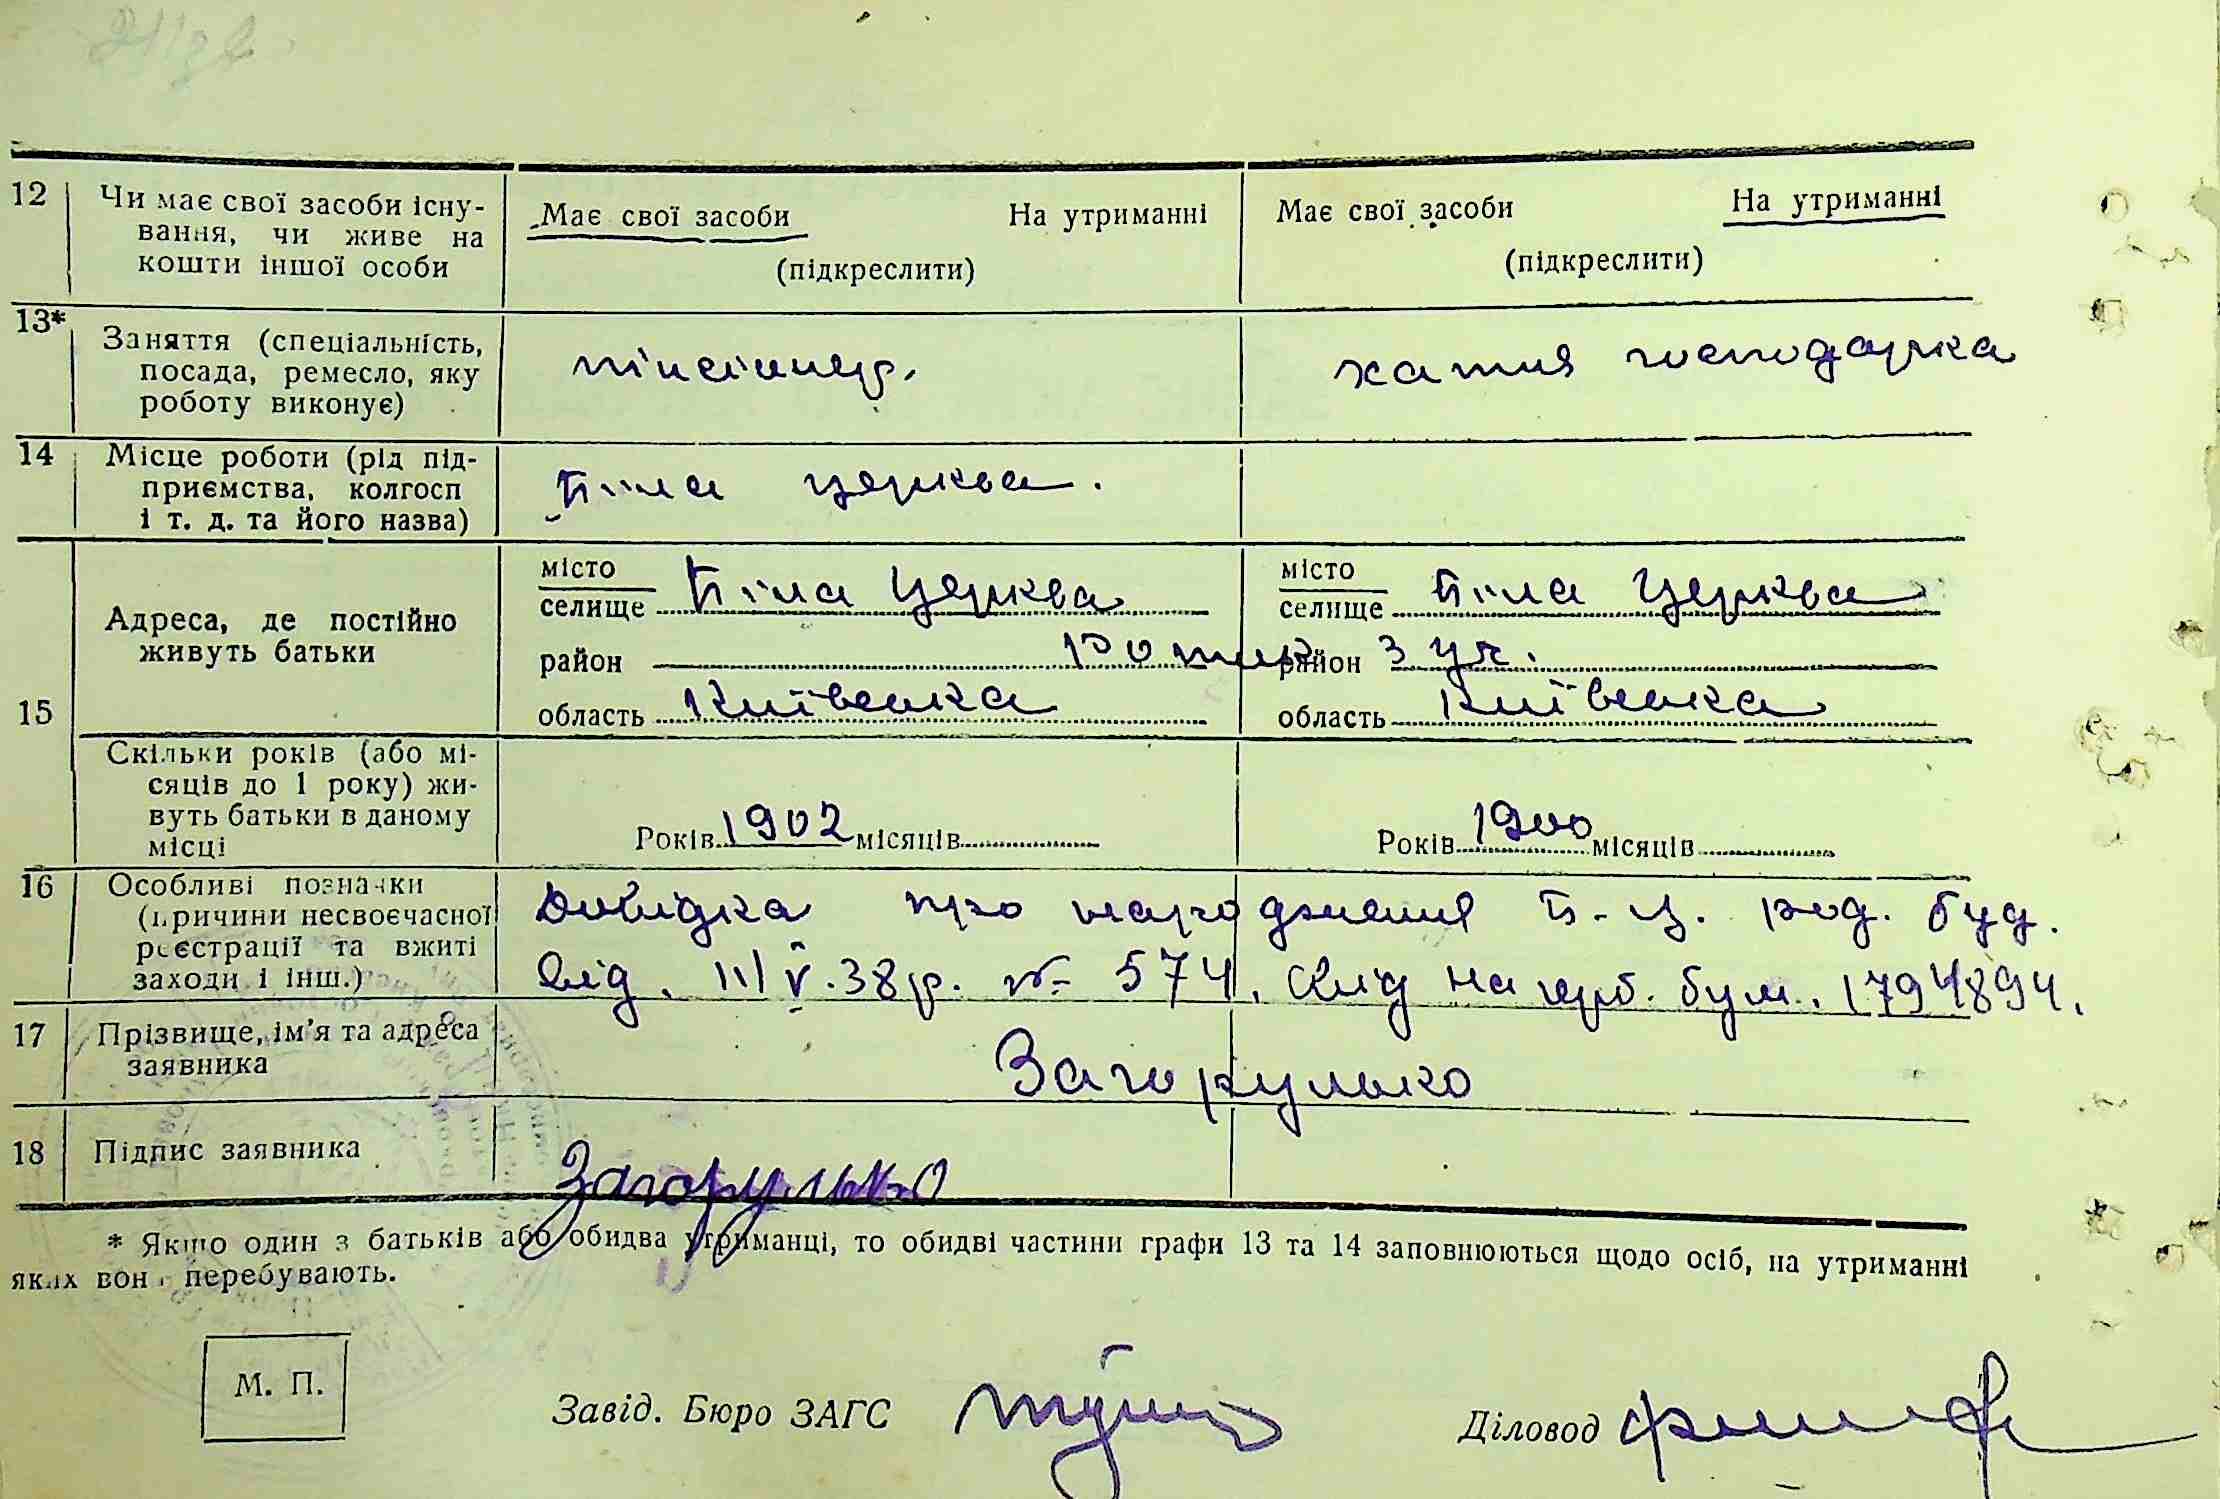 12 Чи має свої засоби існу-
вання, чи живе на
кошти іншої особи
Має свої засоби На утриманні
(підкреслити)
Має свої засоби На утриманні
(підкреслити)
13* Заняття (спеціальність,
посада, ремесло, яку
роботу виконує)
пінсіонер.
хатня господарка
14 Місце роботи (рід під-
приємства, колгосп
і т. д. та його назва)
Біла церква.
15
Адреса, де постійно
живуть батьки
місто
селище Біла Церква
район Роток
область Київська
місто
селище Біла Церква
район 3 уч.
область Київська
Скільки років (або мі-
сяців до 1 року) жи-
вуть батьки в даному
місці
Років 1902 місяців
Років 1900 місяців
16 Особливі позначки
(причини несвоєчасної
реєстрації та вжиті
заходи і інш.)
Довідка про народження Б-Ц. род. буд.
від. 111 V.38р. № 574. на герб. бум. 1794894.
17 Прізвище, ім'я та адреса
заявника
Загорулько
18 Підпис заявника
Загорулько
* Якщо один з батьків або обидва утриманці, то обидві частини графи 13 та 14 заповнюються щодо осіб, на утриманні
яких вони перебувають.
М. П.
Завід. Бюро ЗАГС
Діловод